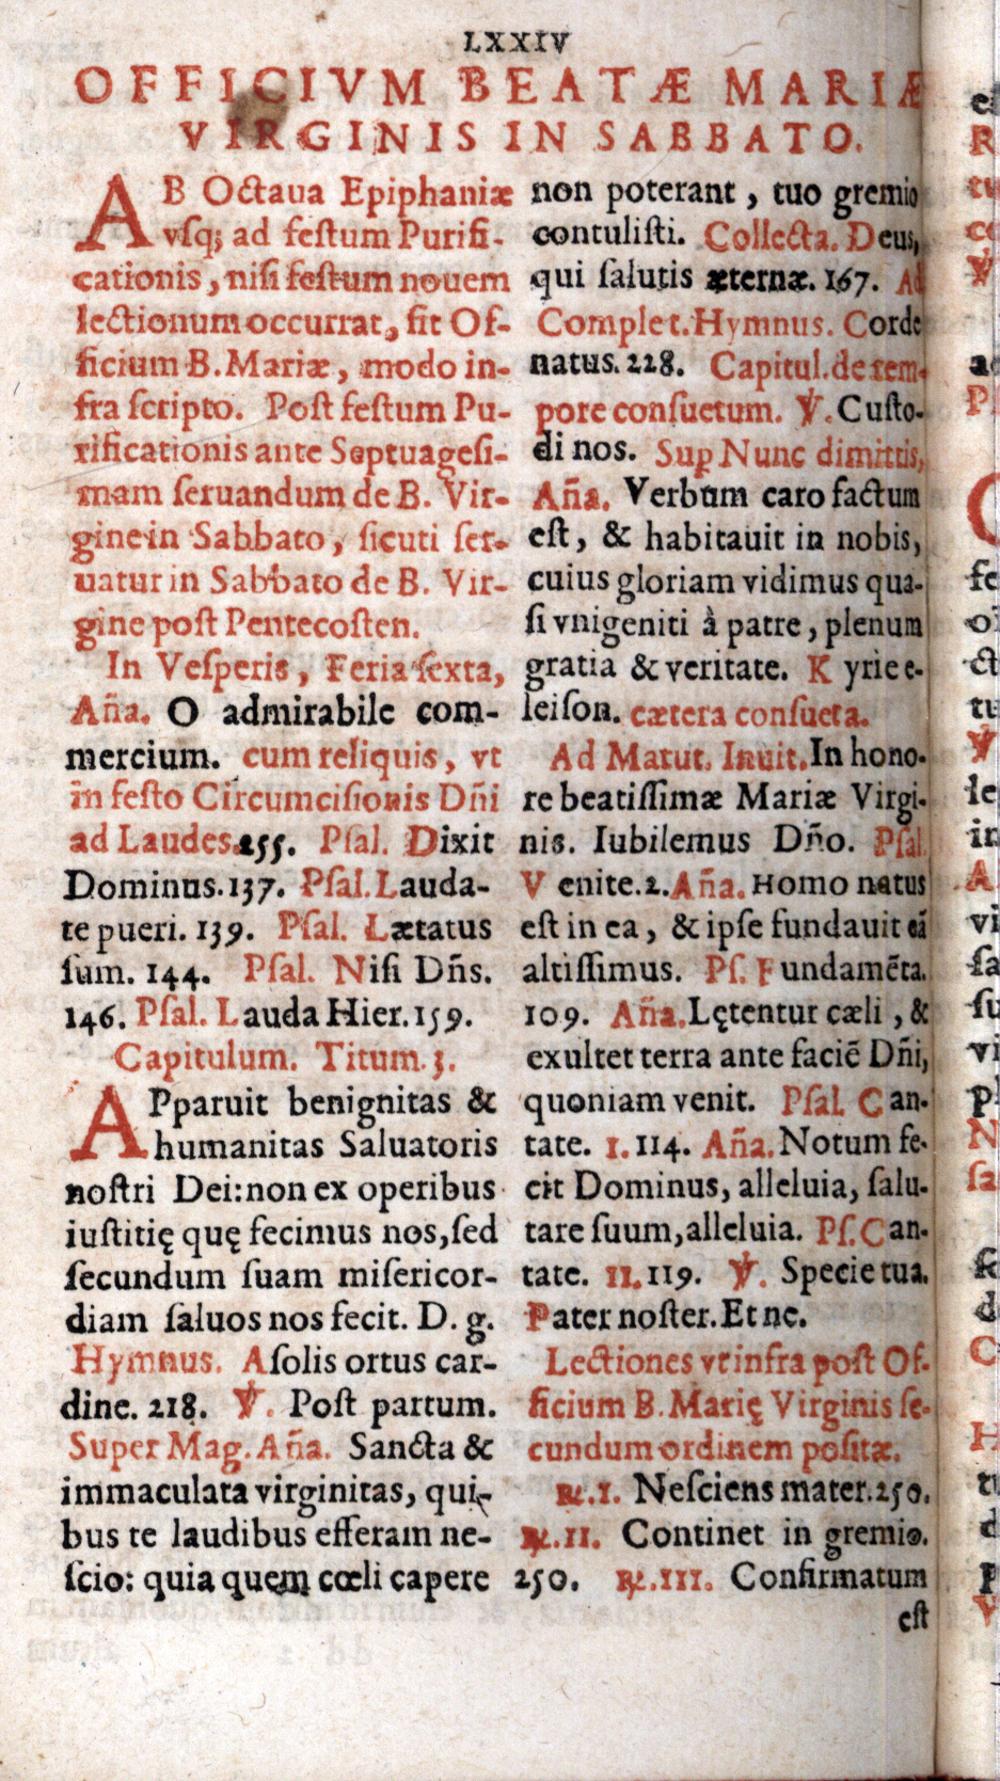 LXXIV
OFFICIVM BEATÆ MARIÆ
VIRGINIS IN SABBATO.
AB Octaua Epiphaniæ
vſq; ad feſtum Purifi-
cationis, niſi feſtum nouem
lectionum occurrat, fit Of-
ficium B. Mariæ, modo in-
fra ſcripto. Poſt feſtum Pu-
rificationis ante Septuageſi-
mam ſeruandum de B. Vir-
gine in Sabbato, ſicuti ſer-
uatur in Sabbato de B. Vir-
gine poſt Pentecoſten.
In Veſperis, Feria ſexta,
Aña. O admirabile com-
mercium. cum reliquis, vt
in feſto Circumciſionis Dñi
ad Laudes. 255. Pſal. Dixit
Dominus. 137. Pſal. Lauda-
te pueri. 139. Pſal. Lætatus
ſum. 144. Pſal. Niſi Dñs.
146. Pſal. Lauda Hier. 159.
Capitulum. Titum. 3.
APparuit benignitas &
humanitas Saluatoris
noſtri Dei: non ex operibus
iuſtitię quę fecimus nos, ſed
ſecundum ſuam miſericor-
diam ſaluos nos fecit. D. g.
Hymnus. A ſolis ortus car-
dine. 218. ℣. Poſt partum.
Super Mag. Aña. Sancta &
immaculata virginitas, qui-
bus te laudibus efferam ne-
ſcio: quia quem cœli capere
non poterant, tuo gremio
contuliſti. Collecta. Deus,
qui ſalutis æternæ. 167. Ad
Complet. Hymnus. Corde
natus. 228. Capitul. de tem-
pore conſuetum. ℣. Cuſto-
di nos. Sup Nunc dimittis,
Aña. Verbum caro factum
eſt, & habitauit in nobis,
cuius gloriam vidimus qua-
ſi vnigeniti à patre, plenum
gratia & veritate. K yrie e-
leiſon. cætera conſueta.
Ad Matut. Inuit. In hono-
re beatiſſimæ Mariæ Virgi-
nis. Iubilemus Dño. Pſal.
V enite. 2. Aña. Homo natus
eſt in ea, & ipſe fundauit eã
altiſſimus. Pſ. Fundamẽta.
109. Aña. Lętentur cæli, &
exultet terra ante faciẽ Dñi,
quoniam venit. Pſal. Can-
tate. I. 114. Aña. Notum fe-
cit Dominus, alleluia, ſalu-
tare ſuum, alleluia. Pſ. Can-
tate. II. 119. ℣. Specie tua.
Pater noſter. Et ne.
Lectiones vt infra poſt Of-
ficium B. Marię Virginis ſe-
cundum ordinem poſitæ.
℟. I. Neſciens mater. 250.
℟. II. Continet in gremio.
250. ℟. III. Confirmatum
eſt